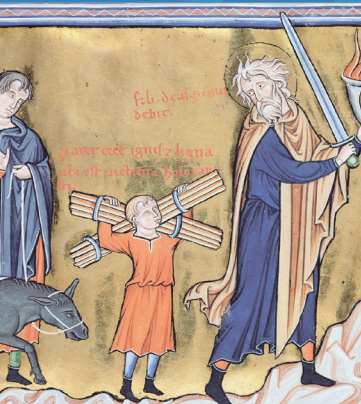 fili.
debit.
pater ecce ignis ⁊ ligna
ubi est uictima holocau
sti.